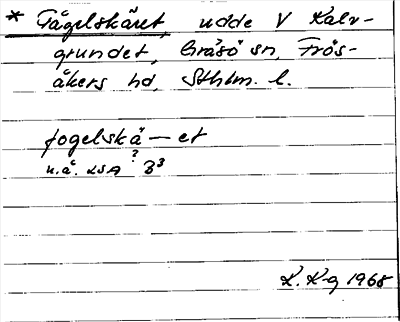 * Fågelskäret, udde V Kalv-
grundet, Gräsö sn, Frös-
åkers hd, Sthlm. l.
fogelskä — et
u.å. LSA ? B3
K. K-g 1968